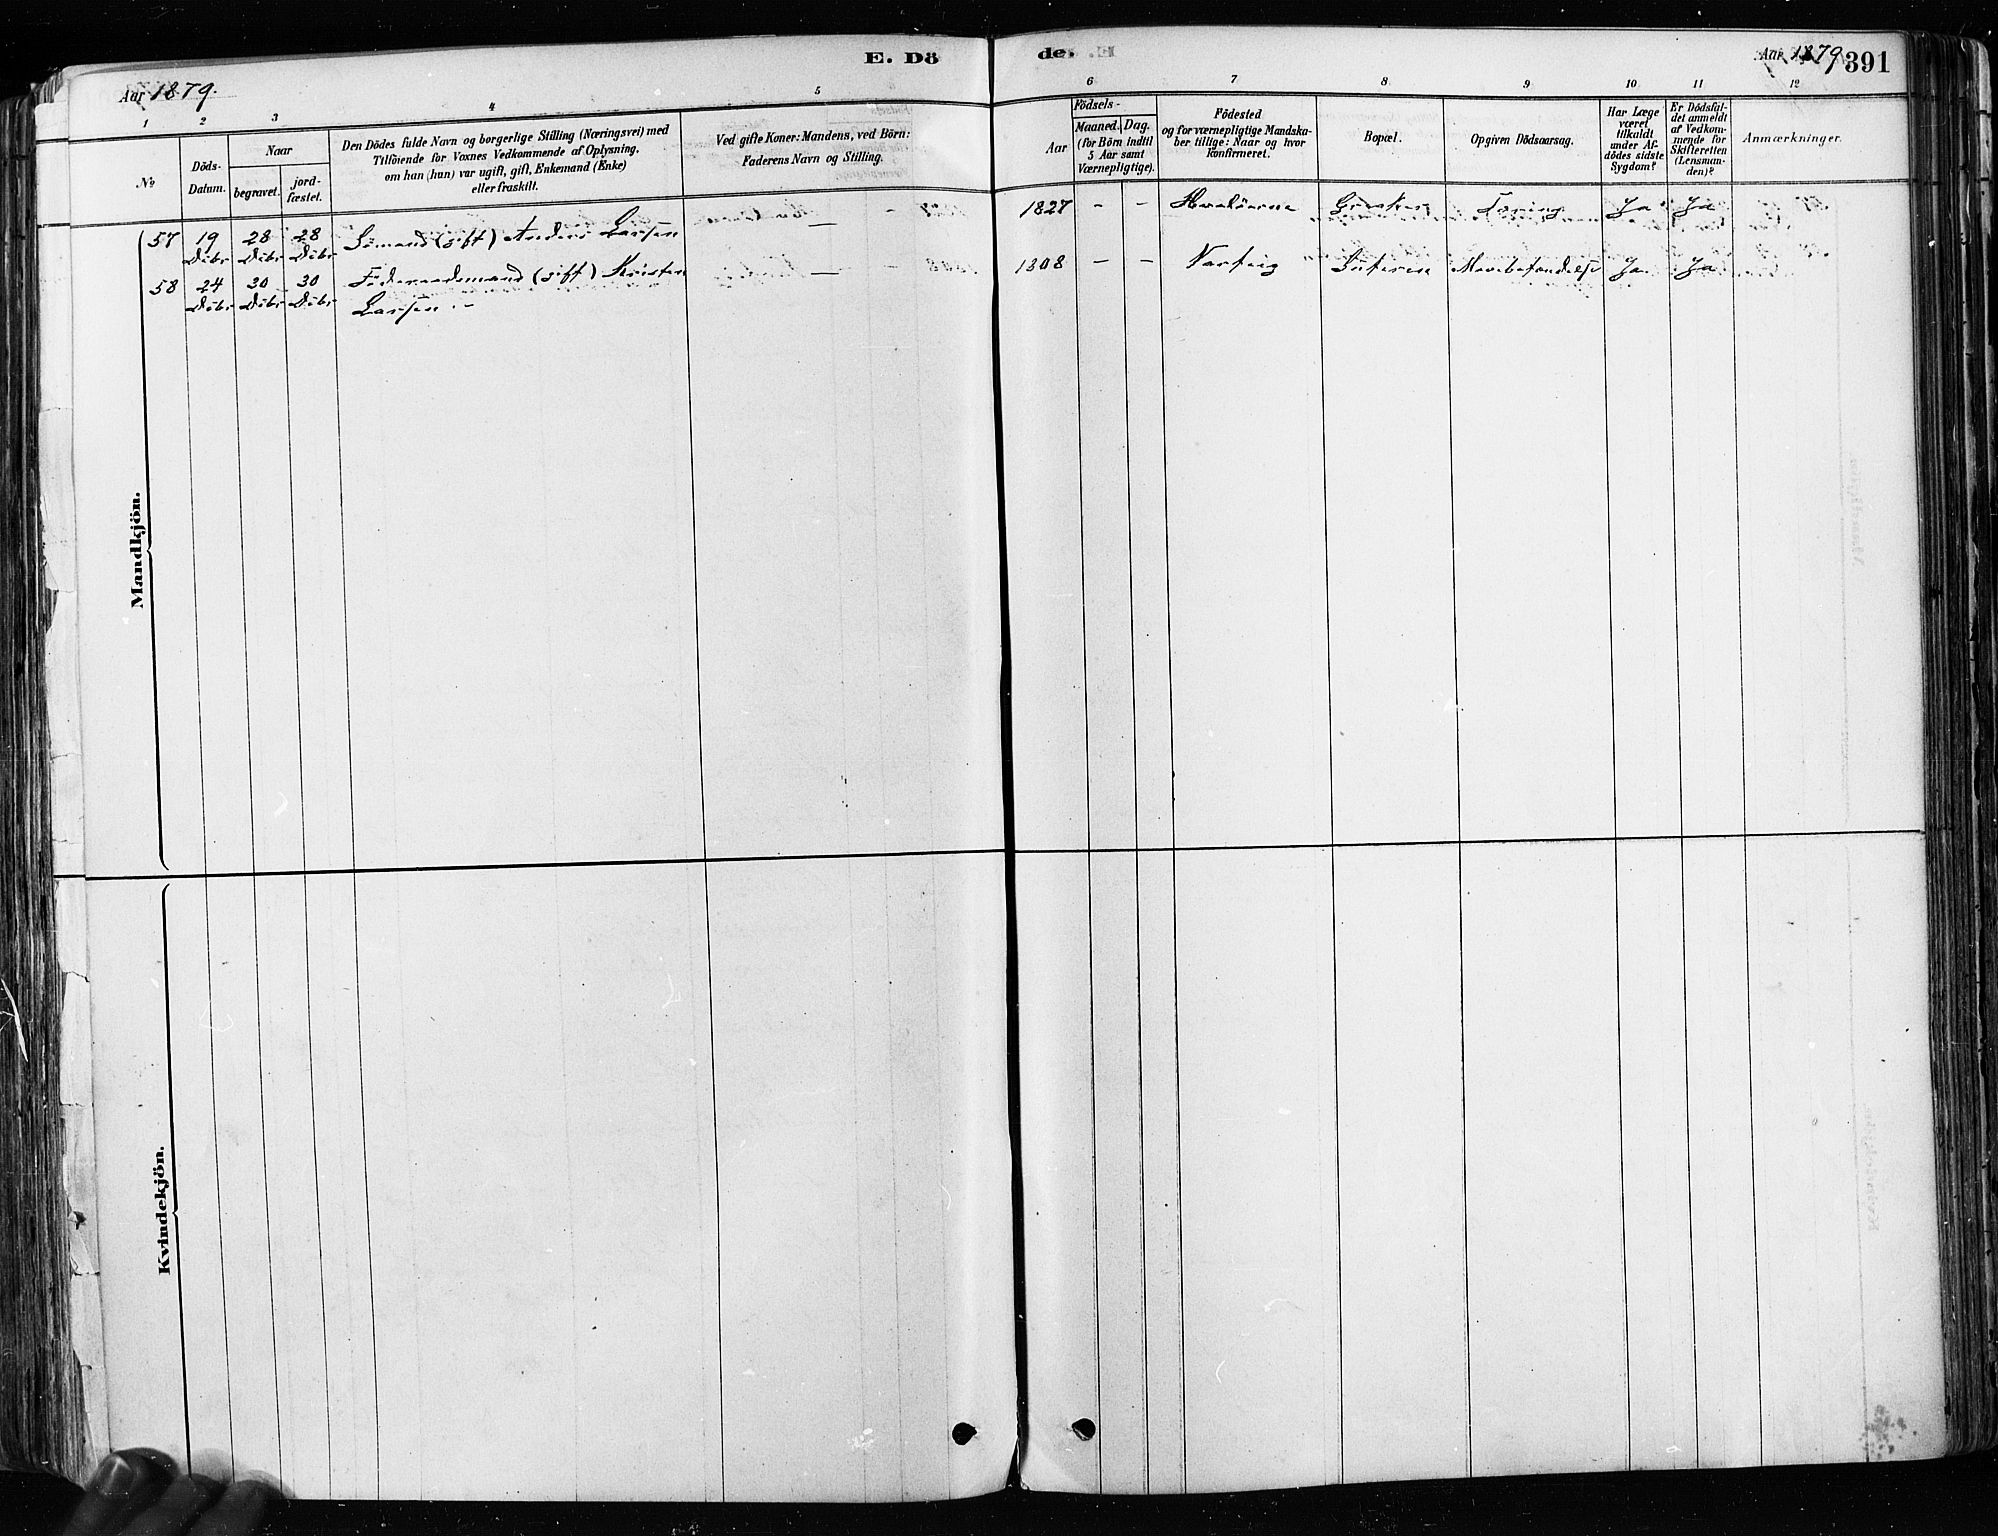 E. Dö
de.
Aar 1879.
Aar 1879
391
1 2 3 4 5 6 7 8 9 10 11 12
No
Döds-
Datum.
Naar
begravet.
jord-
fæstet.
Den Dödes fulde Navn og borgerlige Stilling (Næringsvei) med
Tilföiende for Voxnes Vedkommende af Oplysning,
om han (hun) var ugift, gift, Enkemand (Enke)
eller fraskilt.
Ved gifte Koner: Mandens, ved Börn:
Faderens Navn og Stilling.
Födsels-
Aar
Maaned. Dag.
(for Börn indtil
5 Aar samt
Værnepligtige).
Födested
og for værnepligtige Mandska-
ber tillige: Naar og hvor
konfirmeret.
Bopæl.
Opgiven Dödsaarsag.
Har Læge
været
tilkaldt
under Af-
dödes sidste
Sygdom?
Er Dödsfal-
det anmeldt
af Vedkom-
mende for
Skifteretten
(Lensman-
den)?
Anmærkninger.
Mandkjön.
57 19 28 28 Sömand (gift) Anders Larsen — 1827 — — Hvalöerne Greaker Tæring Ja Ja
Debr Debr Debr
58 24 30 30 Föderaadsmand (gift) Kristen — 1808 — — Varteig Mavebetændelse Ja Ja
Debr Debr Debr Larsen
Kvindekjön.